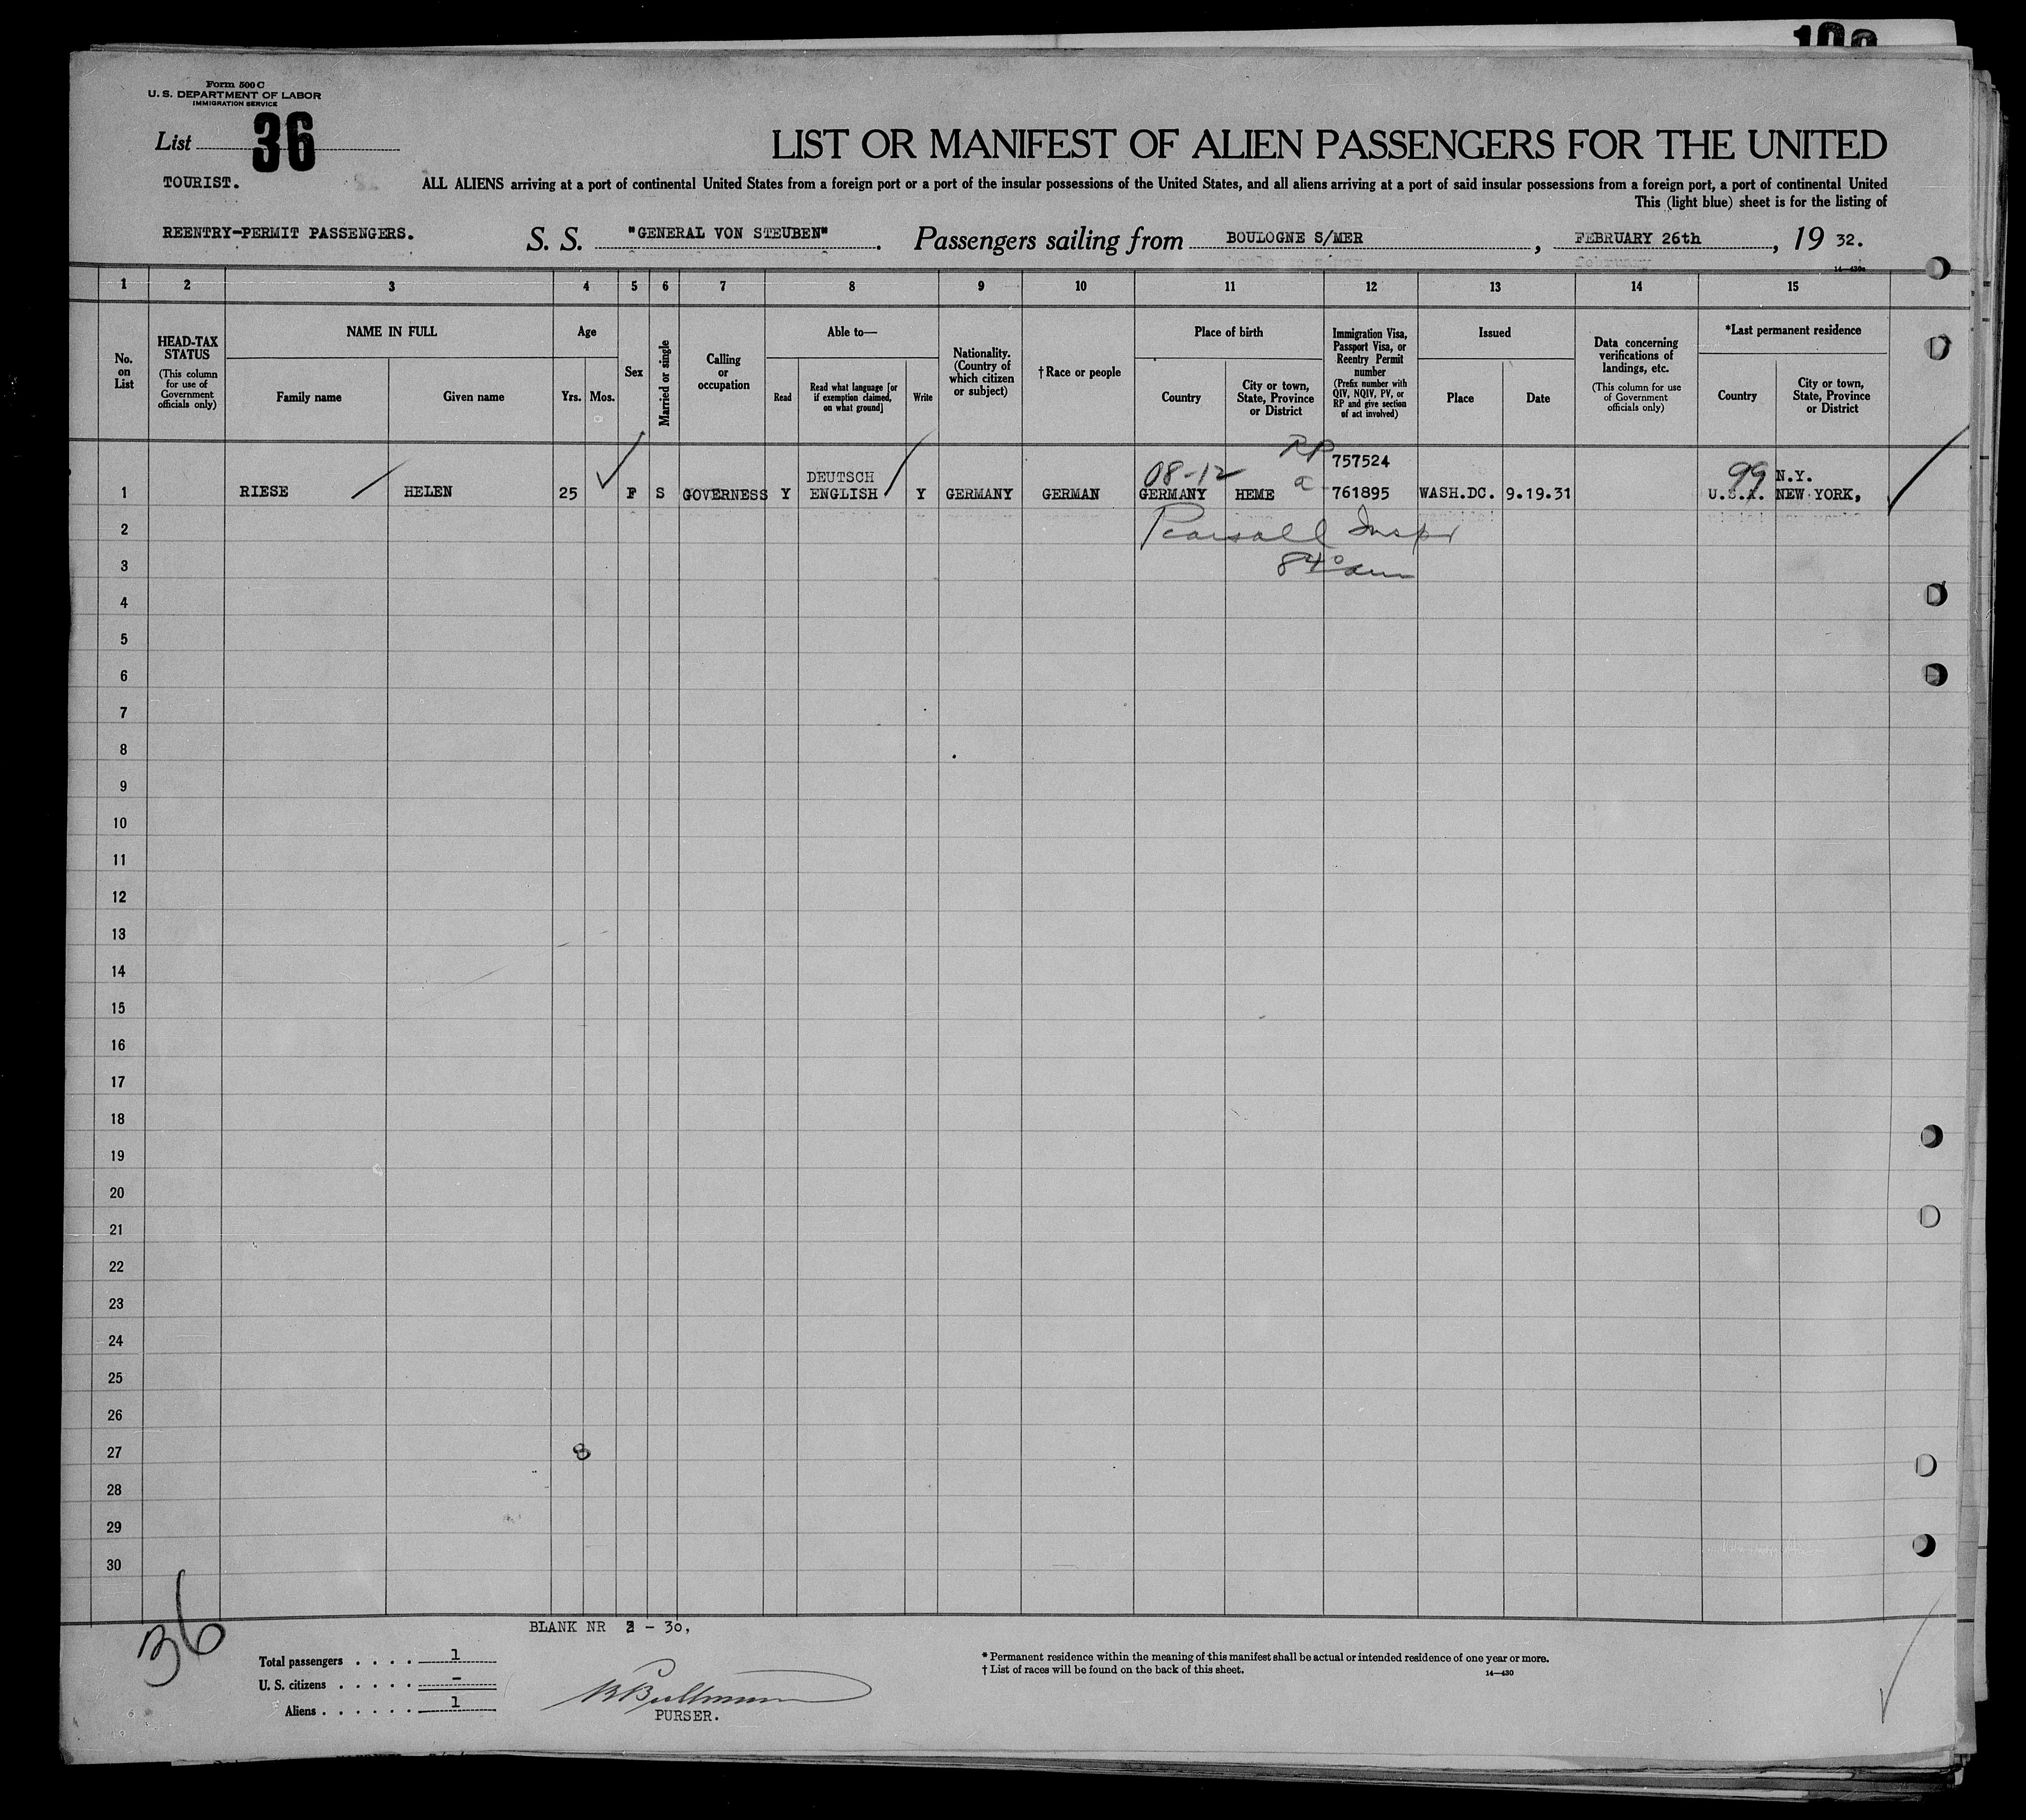 Form 500 C
U. S. DEPARTMENT OF LABOR
IMMIGRATION SERVICE
List 36
LIST OR MANIFEST OF ALIEN PASSENGERS FOR THE UNITED
TOURIST.
ALL ALIENS arriving at a port of continental United States from a foreign port or a port of the insular possessions of the United States, and all aliens arriving at a port of said insular possessions from a foreign port, a port of continental United
This (light blue) sheet is for the listing of
REENTRY-PERMIT PASSENGERS. S. S. "GENERAL VON STEUBEN". Passengers sailing from BOULOGNE S/MER, FEBRUARY 26th, 19 32.
1 2 3 4 5 6 7 8 9 10 11 12 13 14 15
No. on List
HEAD-TAX STATUS (This column for use of Government officials only)
NAME IN FULL
Family name
Given name
Age
Yrs. Mos.
Sex
Married or single
Calling or occupation
Able to—
Read
Read what language [or if exemption claimed, on what ground]
Write
Nationality. (Country of which citizen or subject)
† Race or people
Place of birth
Country
City or town, State, Province or District
Immigration Visa, Passport Visa, or Reentry Permit number (Prefix number with QIV, NQIV, PV, or RP and give section of act involved)
Issued
Place
Date
Data concerning verifications of landings, etc. (This column for use of Government officials only)
*Last permanent residence
Country
City or town, State, Province or District
DEUTSCH 08-12 RP 757524 99 N.Y.
1 RIESE HELEN 25 F S GOVERNESS Y ENGLISH Y GERMANY GERMAN GERMANY HEME a 761895 WASH.DC. 9.19.31 U.S.A. NEW YORK,
2 Pearsall Inspr
3
4
5
6
7
8
9
10
11
12
13
14
15
16
17
18
19
20
21
22
23
24
25
26
27 8
28
29
30
36
BLANK NR 2 - 30,
Total passengers . . . . 1
U. S. citizens . . . . . -
Aliens . . . . . . 1
PURSER.
* Permanent residence within the meaning of this manifest shall be actual or intended residence of one year or more.
† List of races will be found on the back of this sheet.
14—430